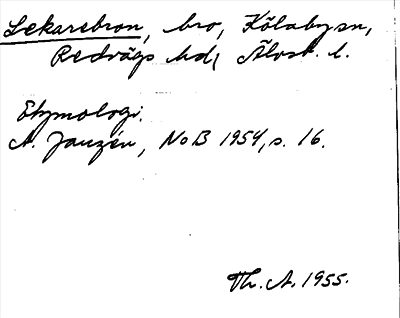 Lekarebron, bro, Kölabysn,
Redvägs hd, Älvsb. l.
Etymologi.
A. Janzén, NoB 1954, s. 16.
Th. A. 1955.